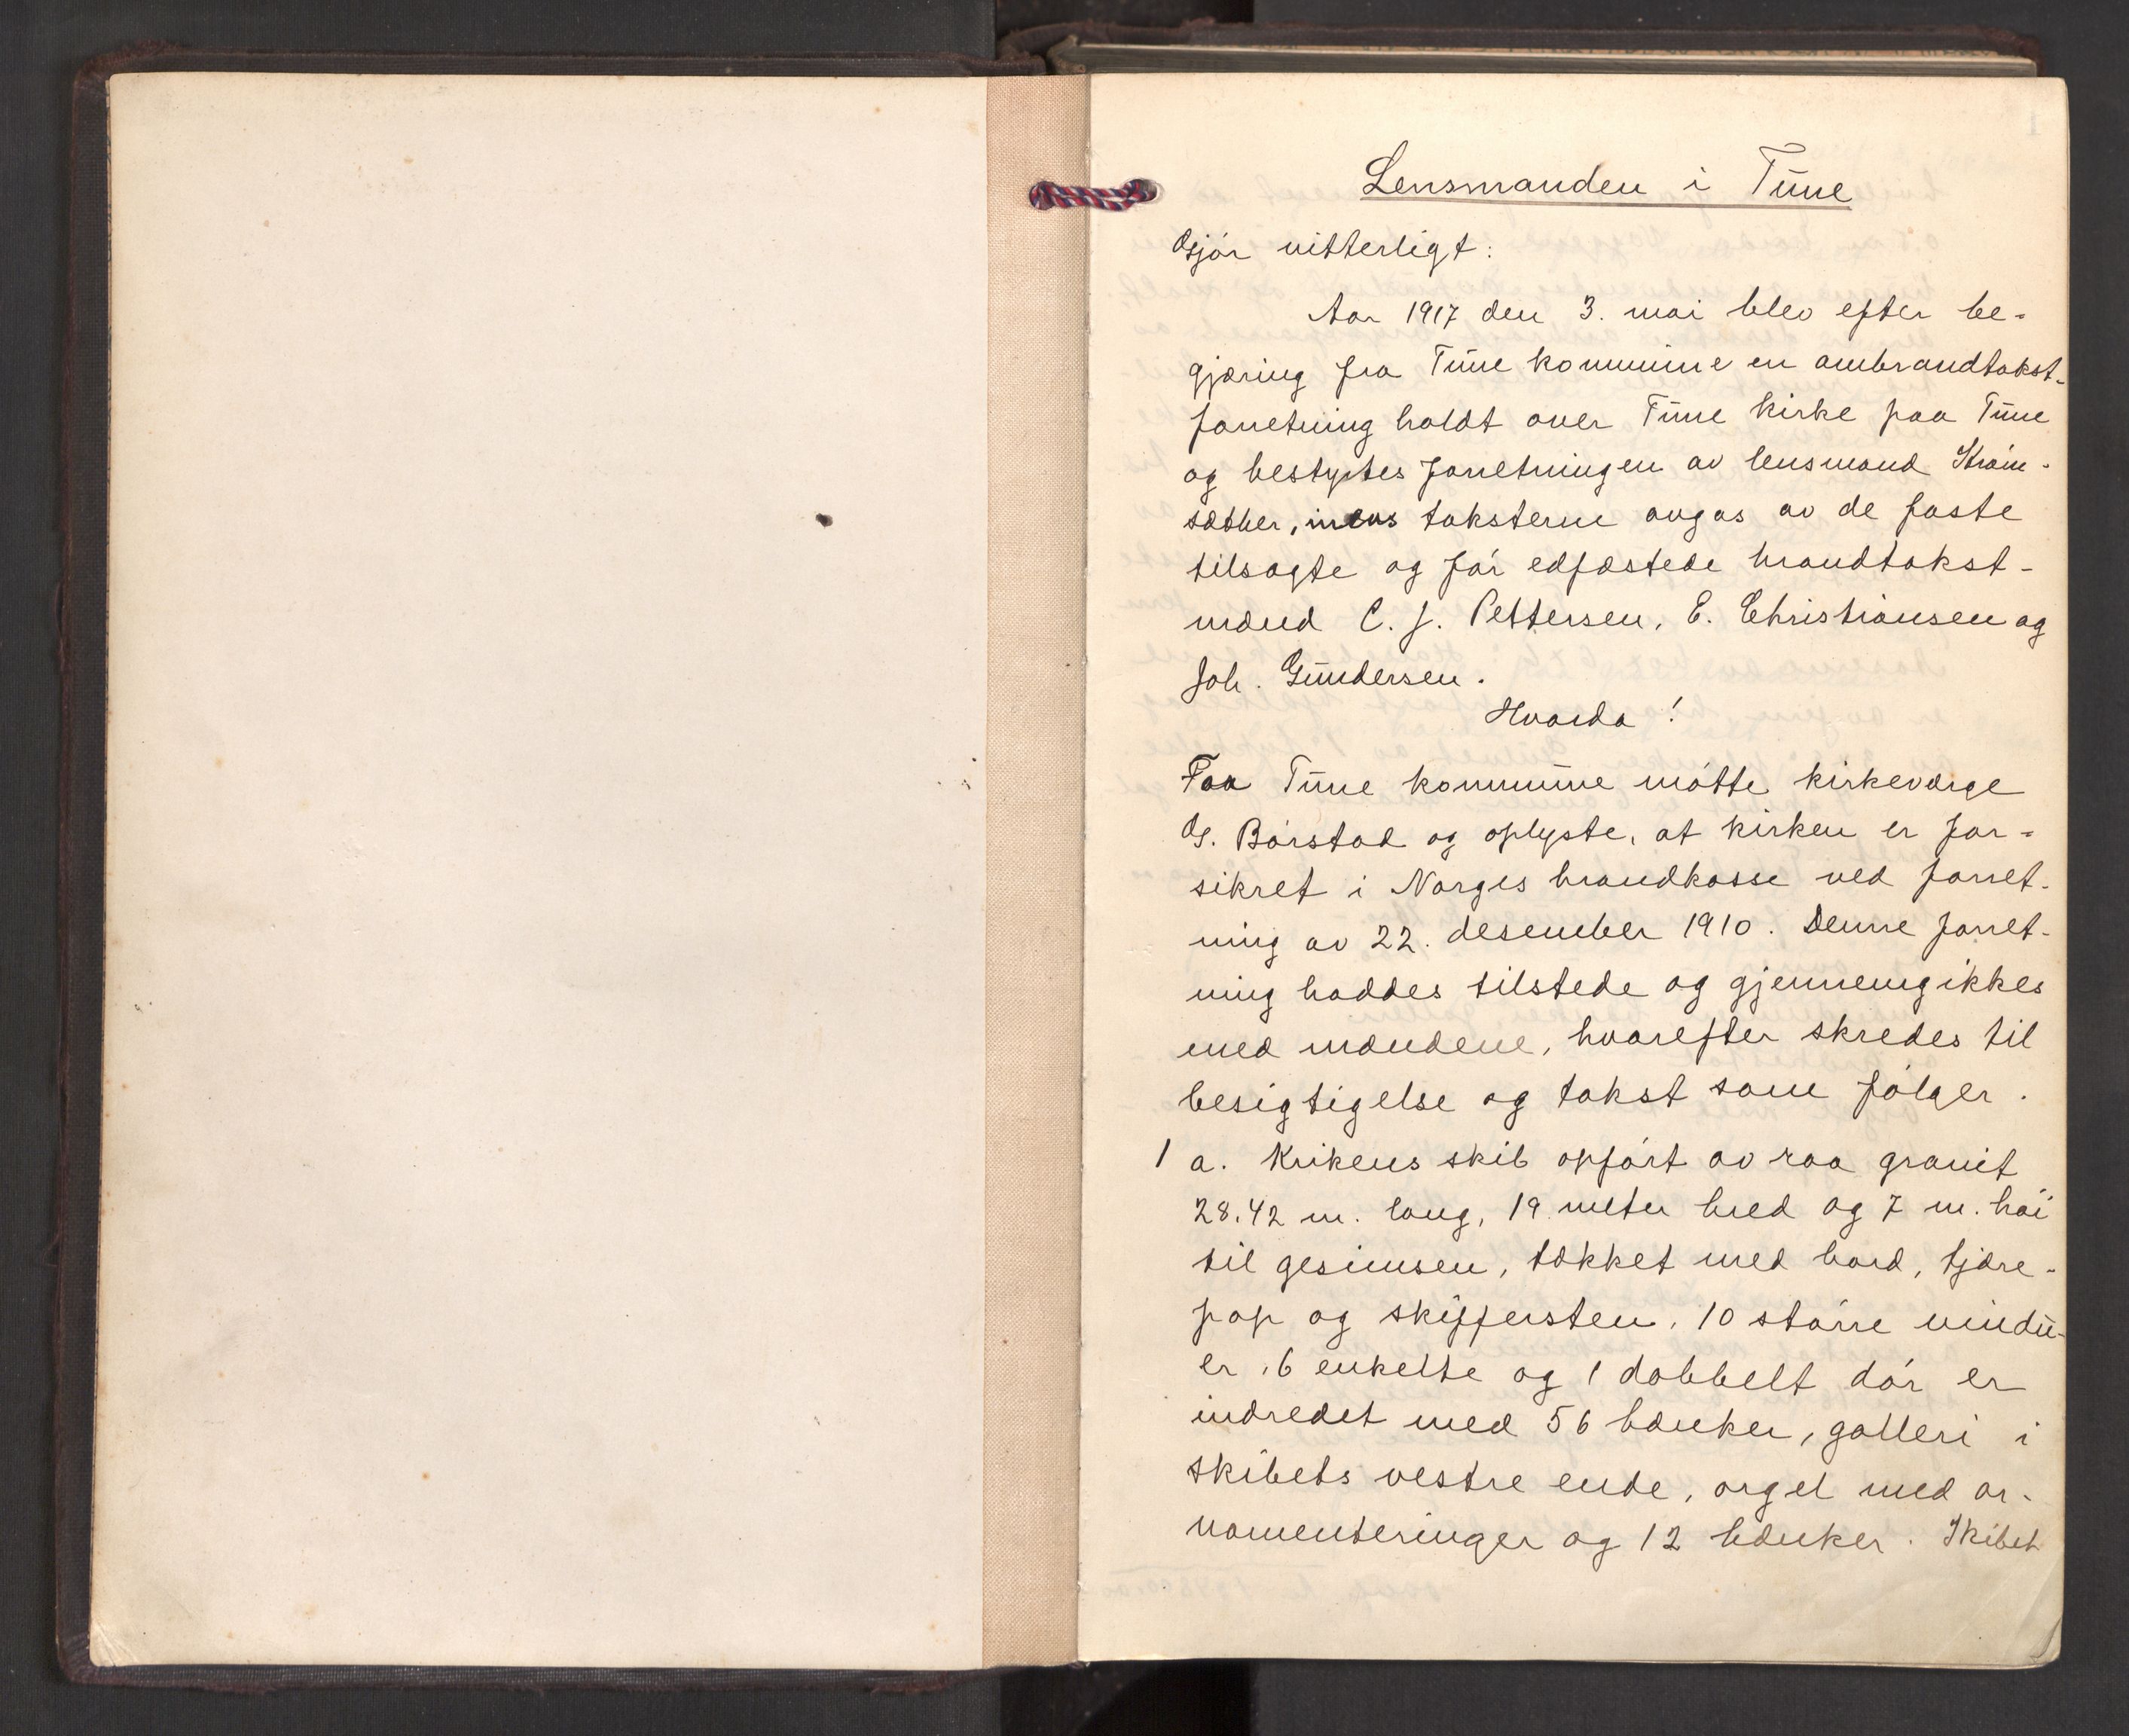 Lensmanden i Tune
Gjør vitterligt:
Aar 1917 den 3. mai blev efter be-
gjæring fra Tune kommune en ombrandtakst-
forretning holdt over Tune kirke paa Tune
og bestyrtes forretningen av lensmand Strøm-
sæther, mens taksterne avgas av de faste
tilsagte og før edfæstede brandtakst-
mænd C. J. Pettersen, E. Christiansen og
Joh. Gundersen.
Hvorda!
Foa Tune kommune møtte kirkeværge
G. Børstad og oplyste, at kirken er for-
sikret i Norges brandkasse ved forret-
ning av 22. desember 1910. Denne forret-
ning haddes tilstede og gjennemgikkes
med mændene, hvorefter skredes til
besigtigelse og takst som følger.
1 a. Krikens skib opført av raa granit
28.42 m. lang, 19 meter bred og 7 m. høi
til gesimsen, tækket med bord, tjære-
pap og skiffersten, 10 større vindu-
er, 6 enkelte og 1 dobbelt dør er
indredet med 56 bænker, galleri i
skibets vestre ende, orgel med or-
namenteringer og 12 bænker. Skibet